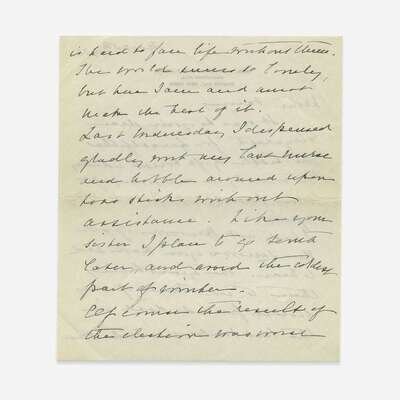 is hard to face life without them.
The world seems so lonely,
but here I am and must
make the best of it.
Last Wednesday I dispensed
gladly with my last nurse
and hobble around upon
two sticks without
assistance. Like your
sister I plan to go South
later and avoid the coldest
part of winter.
Of course the result of
the election was worse